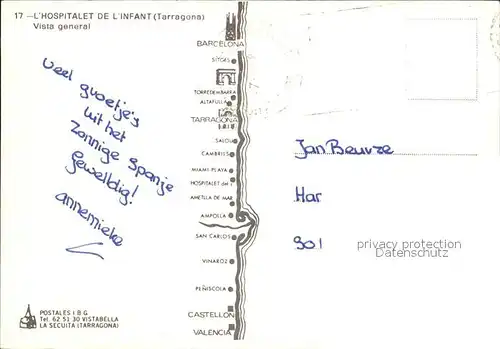 17 — L'HOSPITALET DE L'INFANT (Tarragona)
Vista general
veel groetjes
uit het
Zonnige Spanje
Geweldig!
annemieke
BARCELONA
SITGES
TORREDEMBARRA
ALTAFULLA
TARRAGONA
SALOU
CAMBRILS
MIAMI PLAYA
HOSPITALET del I.
AMETLLA DE MAR
AMPOLLA
SAN CARLOS
VINAROZ
PEÑISCOLA
CASTELLON
VALENCIA
POSTALES I B G
Tel. 62 51 30 VISTABELLA
LA SECUITA (TARRAGONA)
Jan
Har
privacy protection
Datenschutz